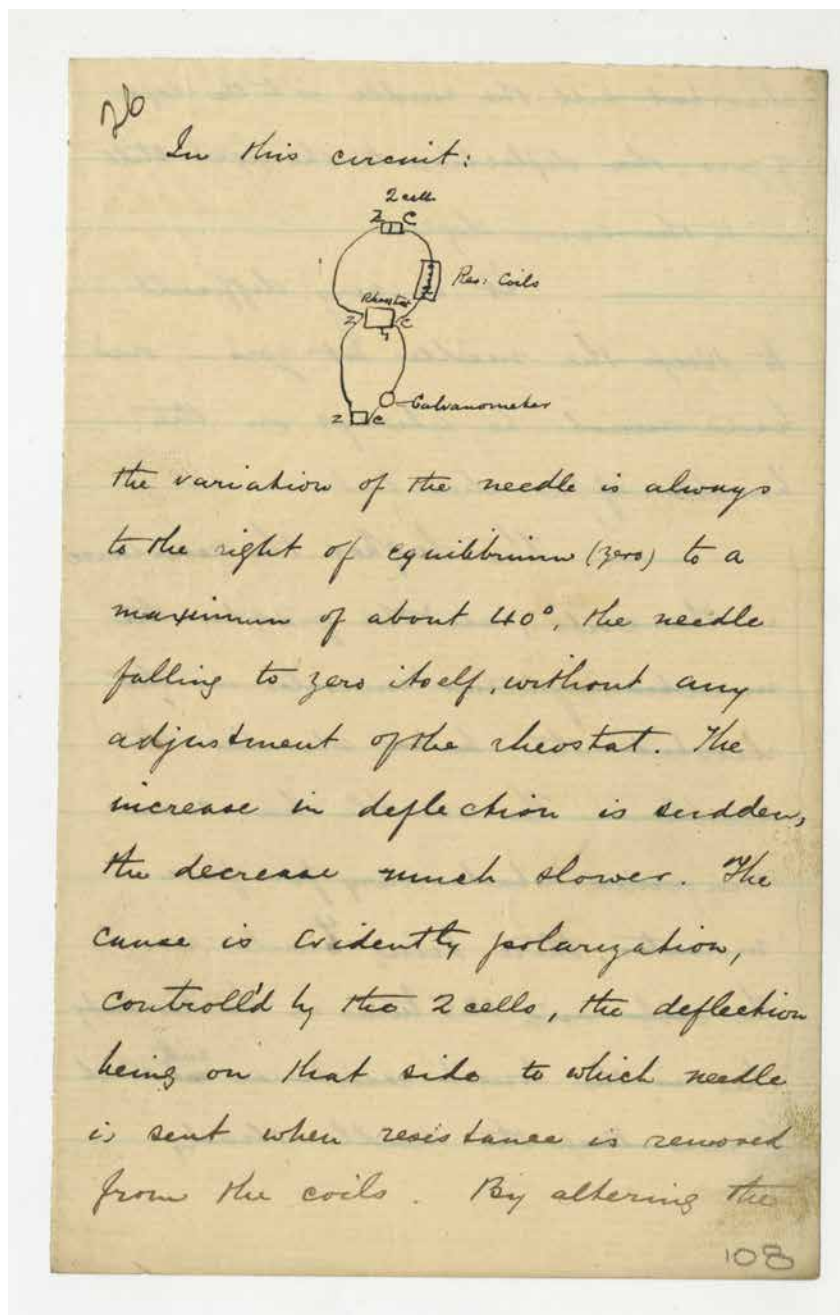 26
In this circuit:
2 cells
Z C
Res: Coils
Rheostat
Z C
Galvanometer
Z C
the variation of the needle is always
to the right of equilibrium (zero) to a
maximum of about 40°, the needle
falling to zero itself, without any
adjustment of the rheostat. The
increase in deflection is sudden,
the decrease much slower. The
cause is evidently polarization,
controll'd by the 2 cells, the deflection
being on that side to which needle
is sent when resistance is removed
from the coils. By altering the
108